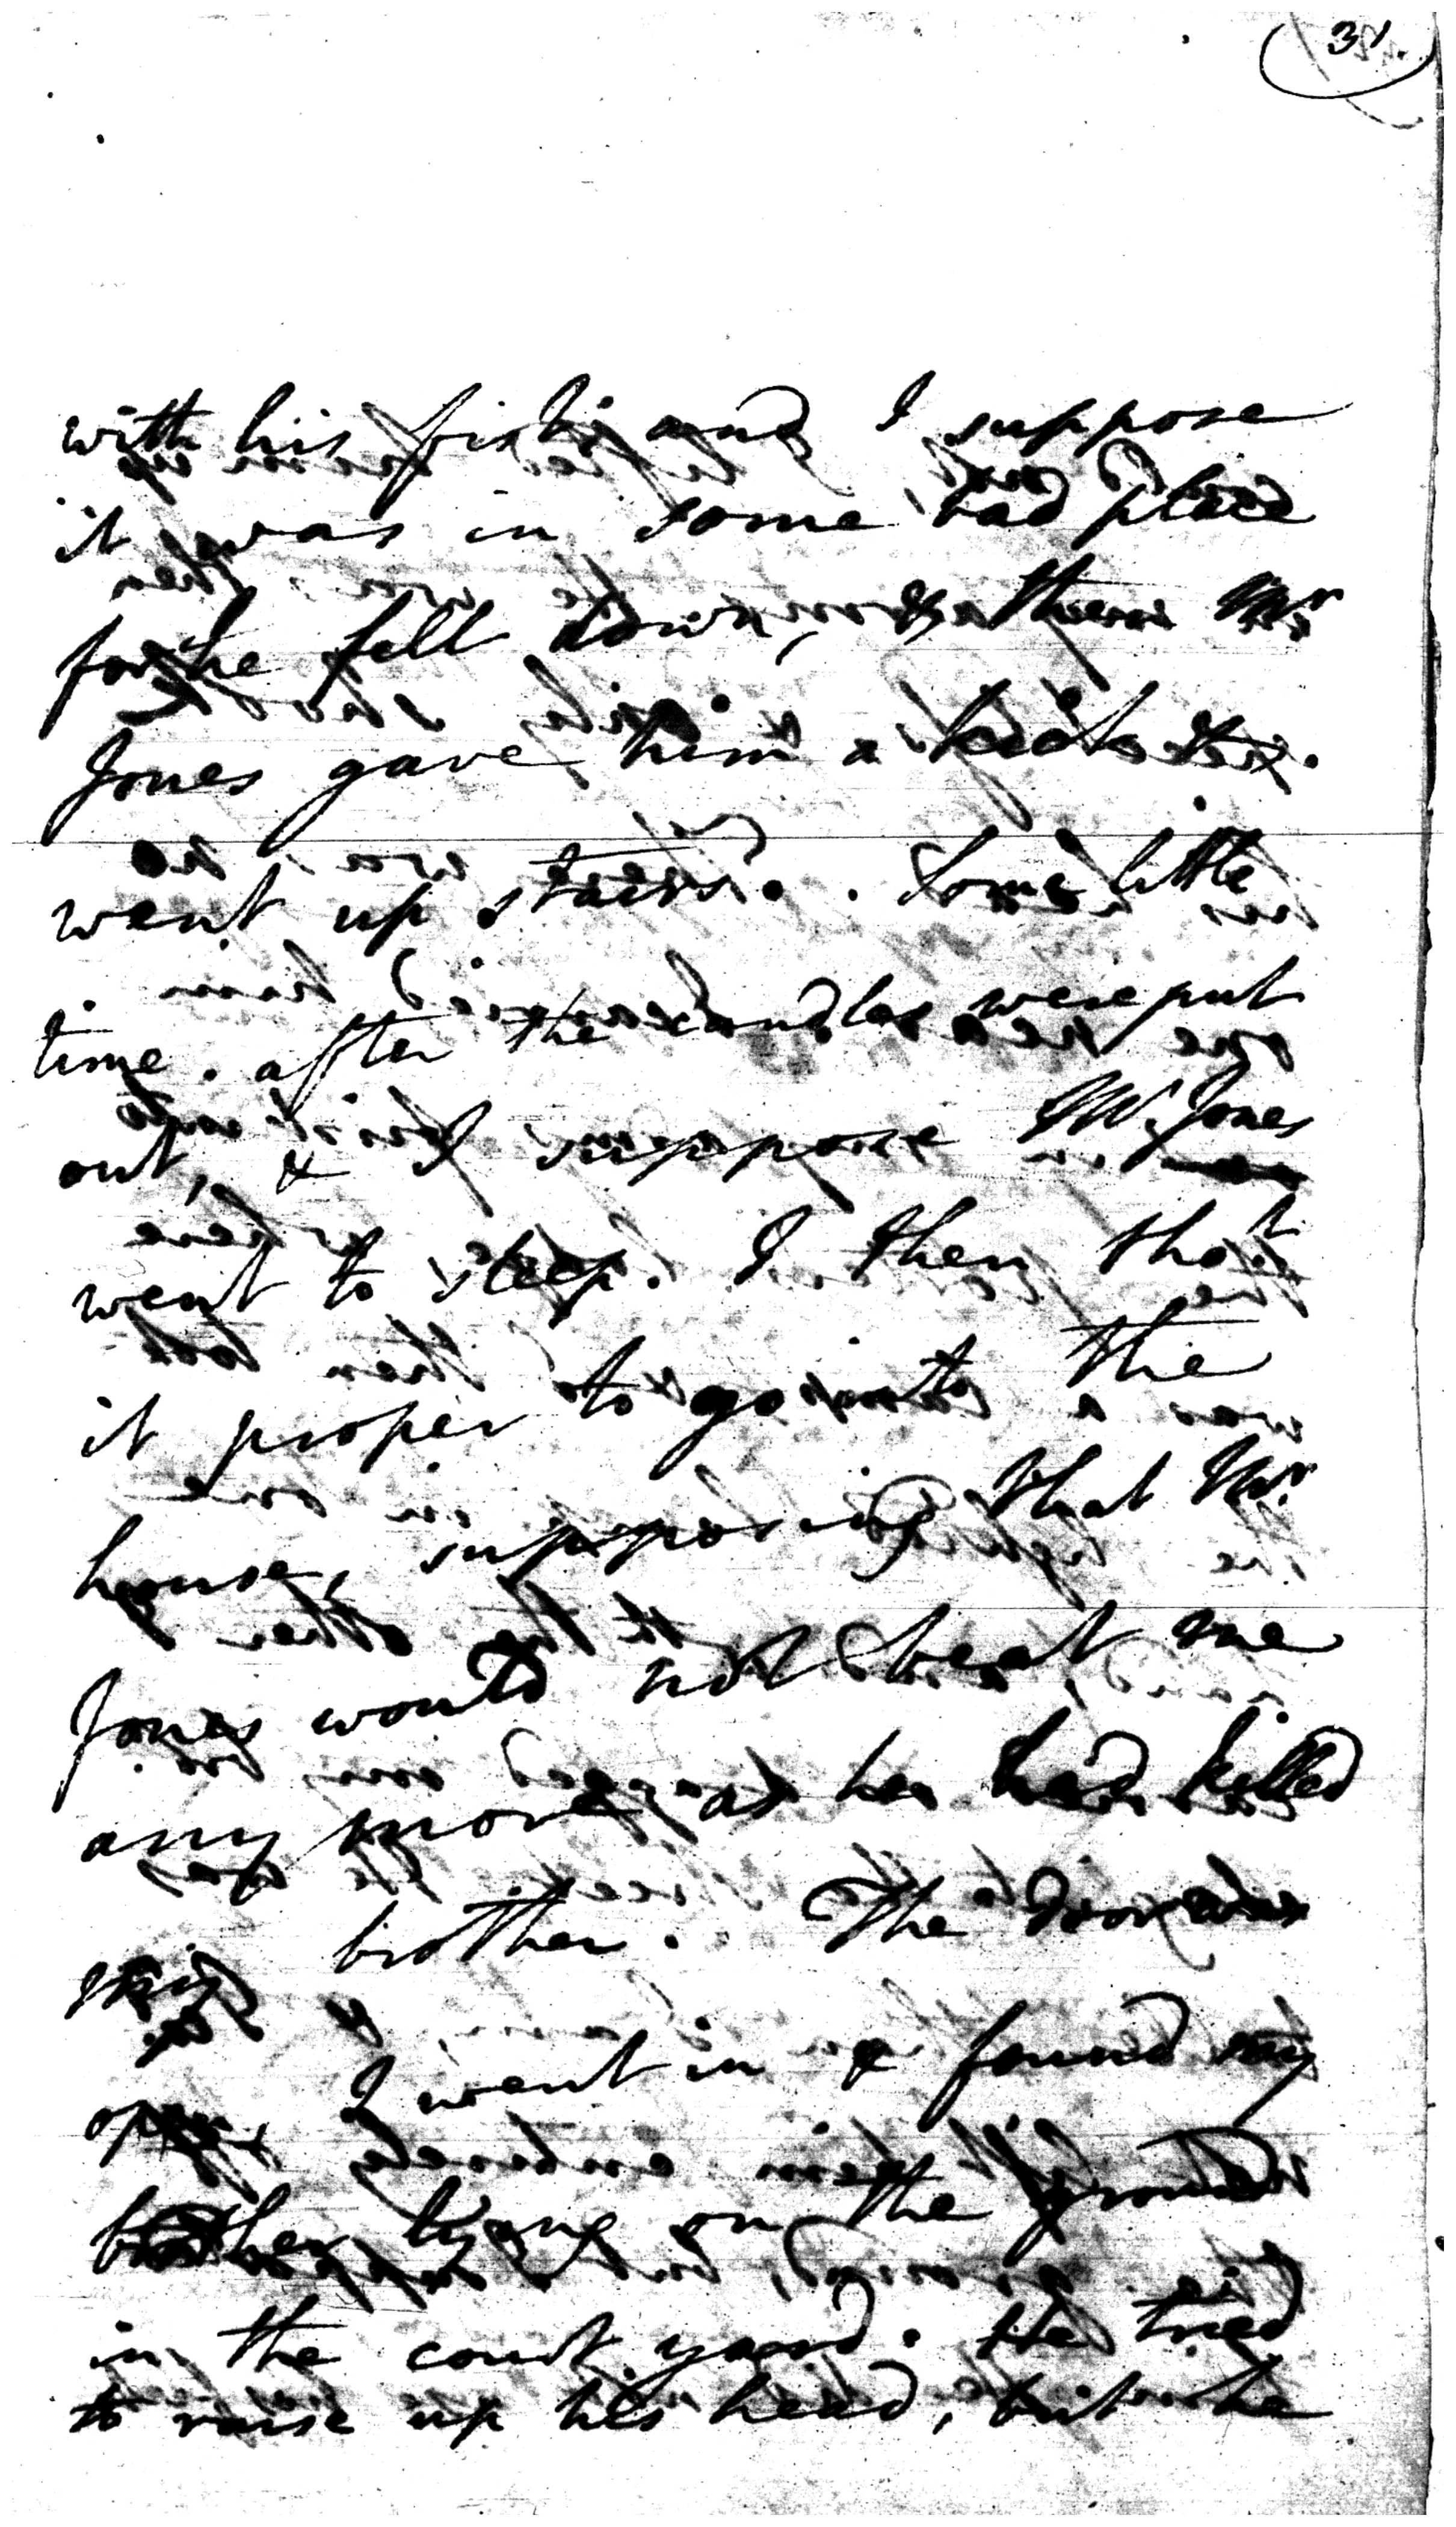 31.
with his fist, and I suppose
it was in some bad place
for he fell down, & then Mr
Jones gave him a kick &
went up stairs. Some little
time. after the candles were put
out, & I suppose Mr. Jones
went to sleep. I then thot
it proper to go into the
house, supposing that Mr
Jones would not beat me
any more as he had killed
my brother. The door was
open, I went in & found my
brother lying on the ground
in the court yard. He tried
to raise up his head, but he